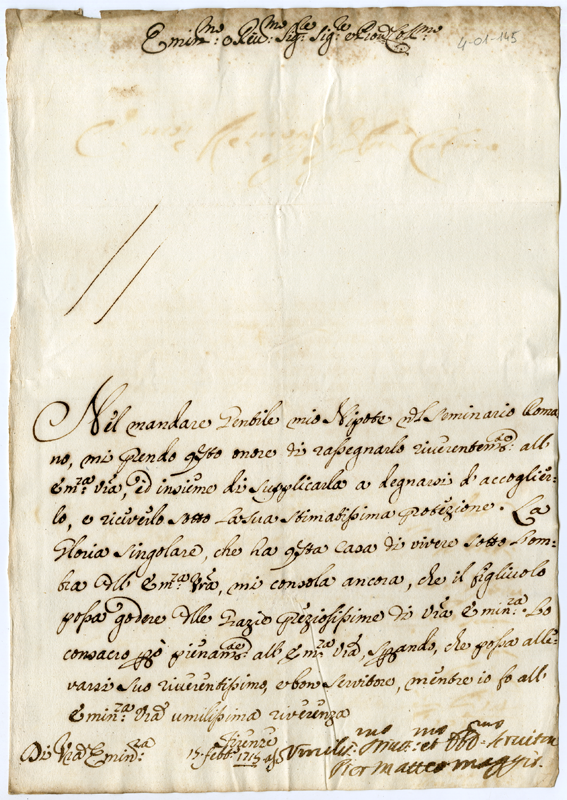 Emin.mo e Reu.mo Sig.re Sig.re e Pron Col.mo
4-01-145
Nel mandare Gentile mio Nipote nel Seminario Roma
no, mi prendo q̃sto onore di rassegnarlo riverentem.te all
Em.za Vr̃a, ed insieme di supplicarla a degnarsi d'accoglier-
lo, e riceverlo sotto la sua stimatissima protezione. La
Gloria singolare, che ha q̃sta Casa di vivere sotto l'om-
bra dell Em.za Vr̃a, mi consola ancora, che il figliuolo
possa godere delle Grazie preziosissime di Vr̃a Emin.za Lo
consacro però pienam.te all Em.za Vr̃a, sperando, che possa alle-
varsi suo riverentissimo, e buon servitore, mentre io fo all
Emin.za Vr̃a umilissima riverenza
Di Vr̃a Emin.za
Firenze
15 febb. 1715
Umiliss.mo et Obb.mo Servitore
Pier Matteo Maggi